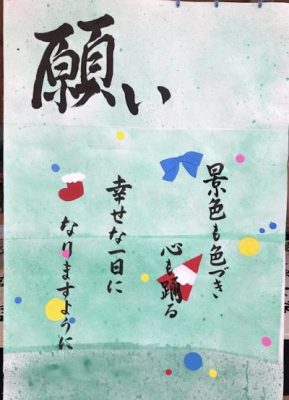 願い
景色も色づき
心も踊る
幸せな一日に
なりますように